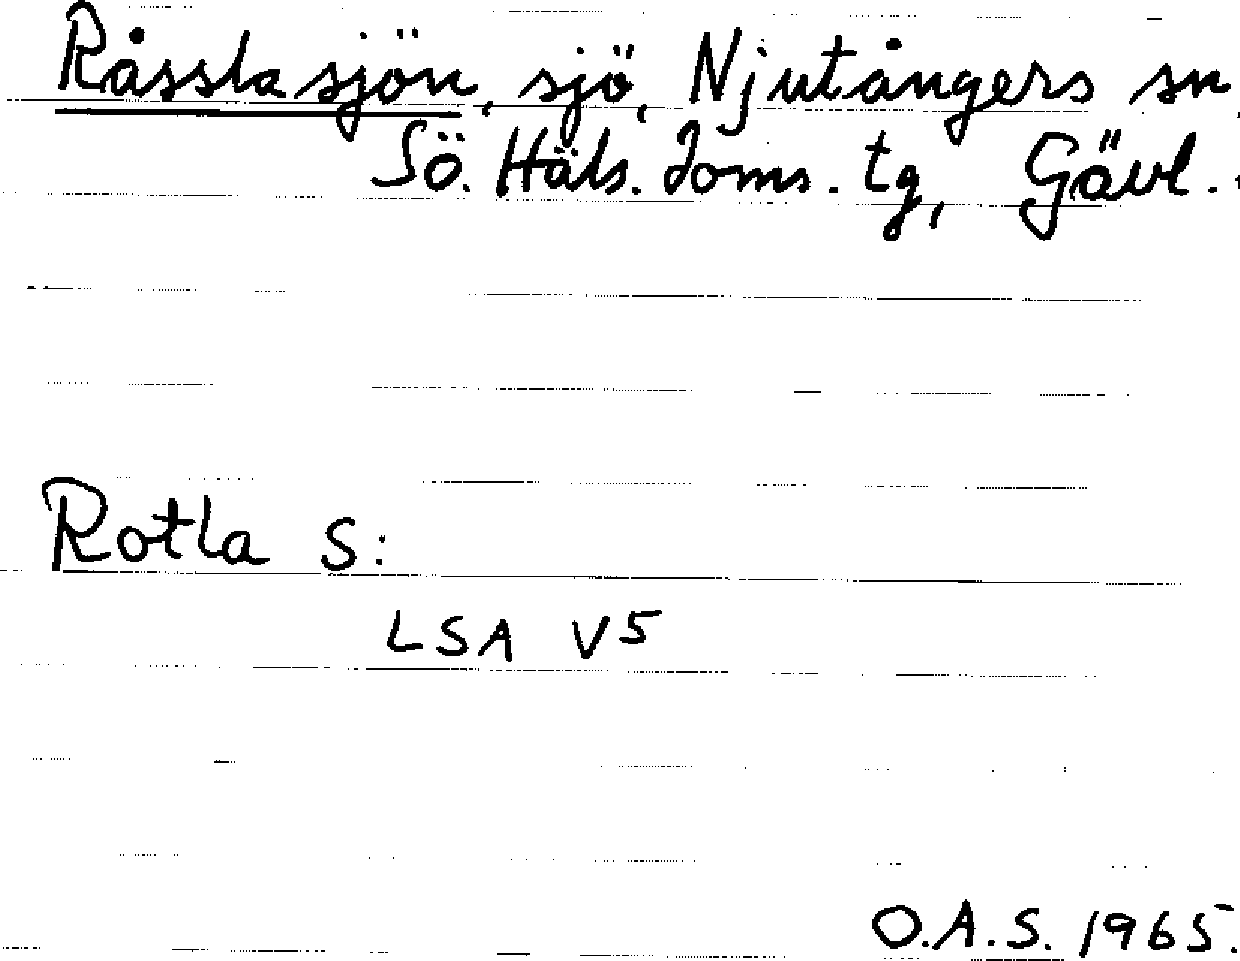 Råsslasjön, sjö, Njutångers sn,
Sö. Häls. doms. tg, Gävl.
Rotla S:
LSA V5
O.A.S. 1965.